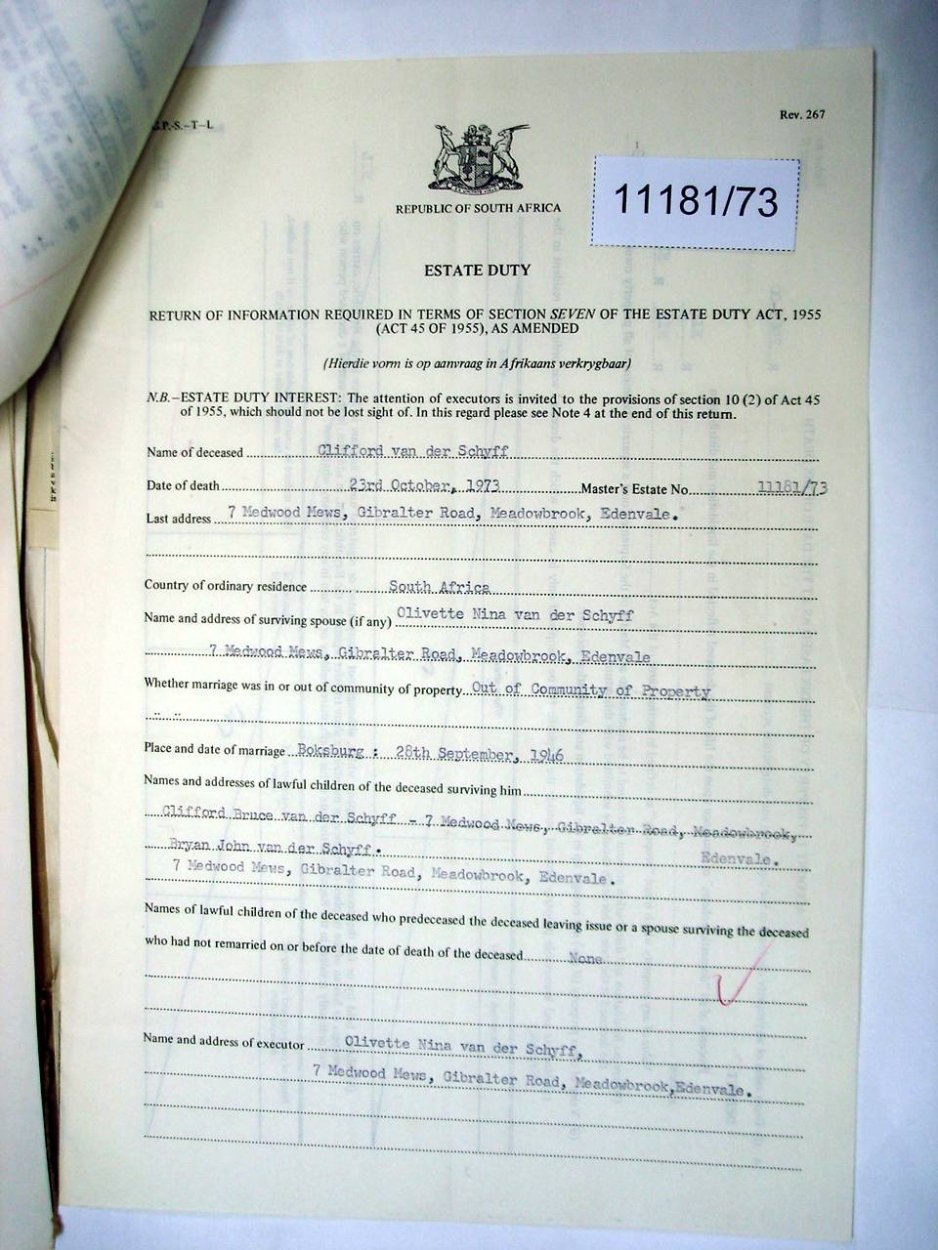 G.P.-S.-T-L
Rev. 267
REPUBLIC OF SOUTH AFRICA
11181/73
ESTATE DUTY
RETURN OF INFORMATION REQUIRED IN TERMS OF SECTION SEVEN OF THE ESTATE DUTY ACT, 1955
(ACT 45 OF 1955), AS AMENDED
(Hierdie vorm is op aanvraag in Afrikaans verkrygbaar)
N.B.–ESTATE DUTY INTEREST: The attention of executors is invited to the provisions of section 10 (2) of Act 45
of 1955, which should not be lost sight of. In this regard please see Note 4 at the end of this return.
Name of deceased Clifford van der Schyff
Date of death 23rd October, 1973 Master's Estate No. 11181/73
Last address 7 Medwood Mews, Gibralter Road, Meadowbrook, Edenvale.
Country of ordinary residence South Africa
Name and address of surviving spouse (if any) Olivette Nina van der Schyff
7 Medwood Mews, Gibralter Road, Meadowbrook, Edenvale
Whether marriage was in or out of community of property Out of Community of Property
Place and date of marriage Boksburg : 28th September, 1946
Names and addresses of lawful children of the deceased surviving him
Clifford Bruce van der Schyff - 7 Medwood Mews, Gibralter Road, Meadowbrook,
Bryan John van der Schyff. Edenvale.
7 Medwood Mews, Gibralter Road, Meadowbrook, Edenvale.
Names of lawful children of the deceased who predeceased the deceased leaving issue or a spouse surviving the deceased
who had not remarried on or before the date of death of the deceased None
Name and address of executor Olivette Nina van der Schyff,
7 Medwood Mews, Gibralter Road, Meadowbrook,Edenvale.